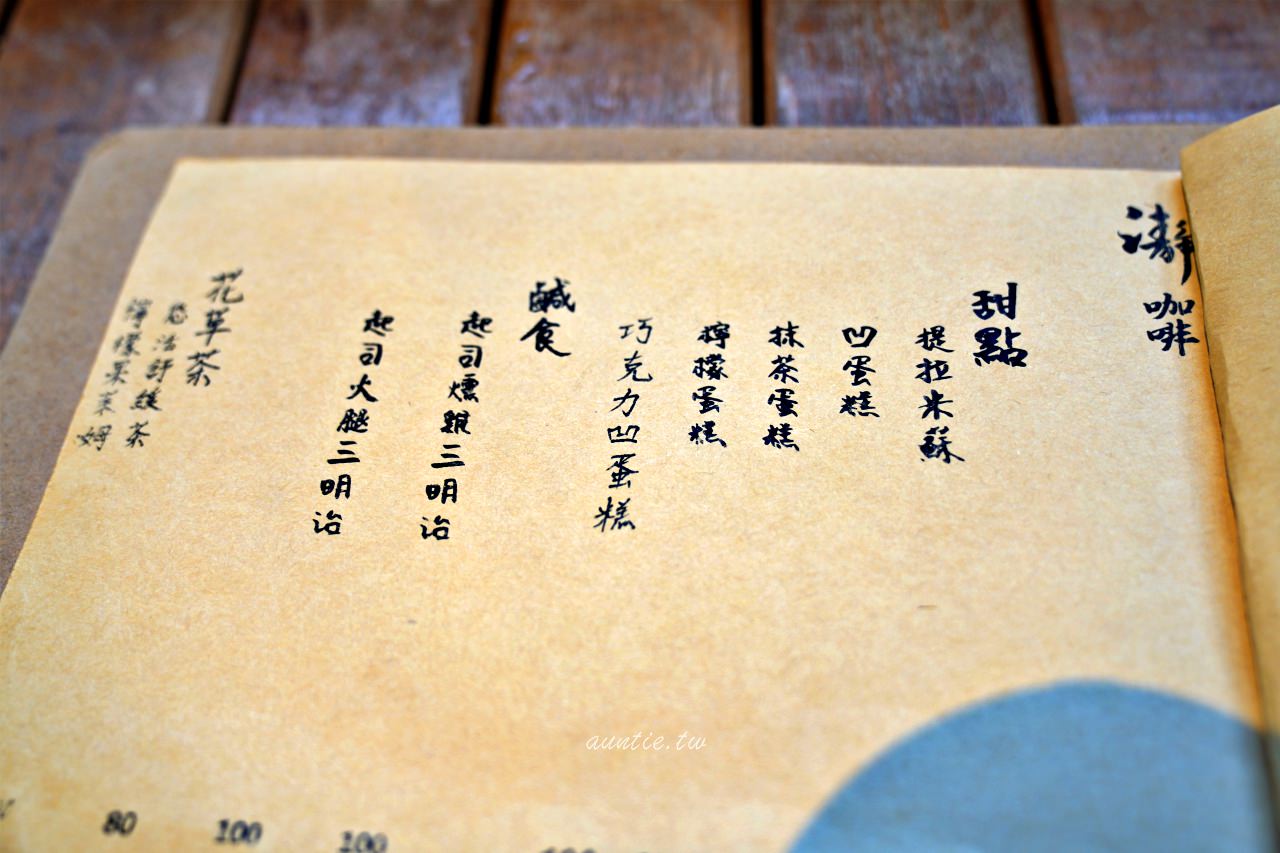 瀞咖啡
甜點
提拉米蘇
凹蛋糕
抹茶蛋糕
檸檬蛋糕
巧克力凹蛋糕
鹹食
起司燻雞三明治
起司火腿三明治
花草茶
悠活舒緩茶
檸檬果茉姆
80
100
100
auntie.tw